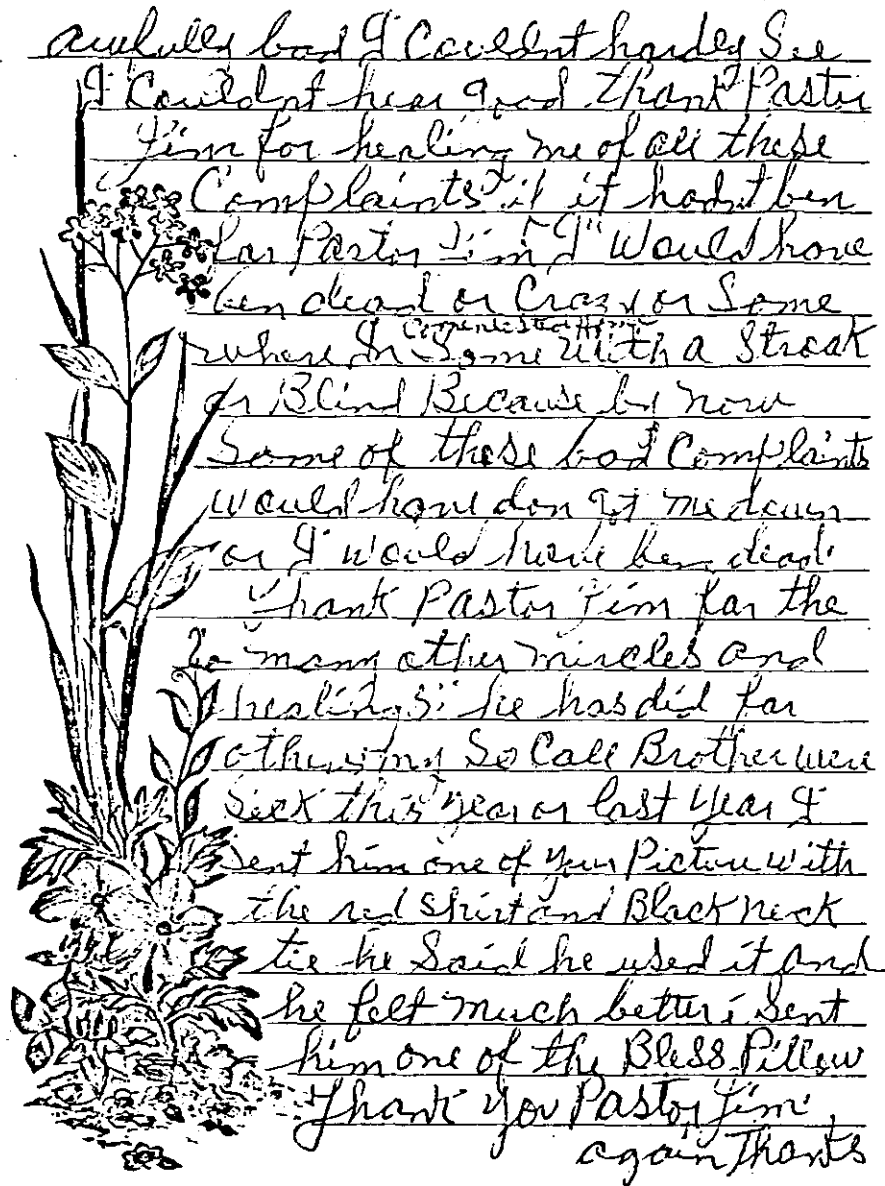 awfully bad I Couldnt hardly See
I Couldnt hear good thank Pastor
Jim for healing me of all these
Complaints if it hadnt ben
for Pastor Jim I would have
ben dead or Crazy or Some
where In Some with a Stroak
or Blind Because by now
Some of these bad Complaints
would have don got me down
or I would have ben dead.
Thank Pastor Jim for the
So many other miracles and
healings he has did for
others my So Call Brother were
Seck this year or last year I
sent him one of your Picture with
the red shirt and Black neck
tie he Said he used it and
he felt much better i Sent
him one of the Bless Pillow
Thank You Pastor Jim
again Thanks